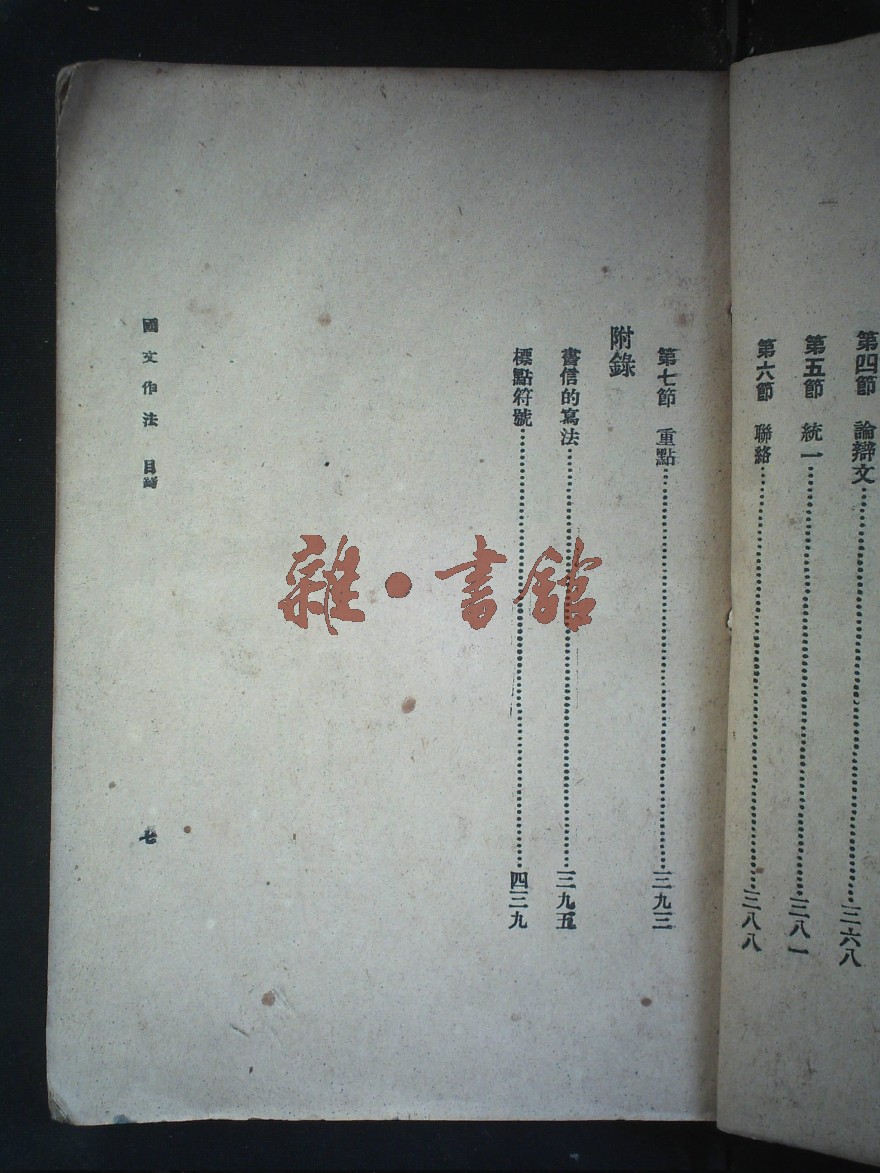 第四節　論辯文……三六八
第五節　統一……三八一
第六節　聯絡……三八八
第七節　重點……三九三
附錄
書信的寫法……三九五
標點符號……四三九
國文作法　目錄
七
雜・書館